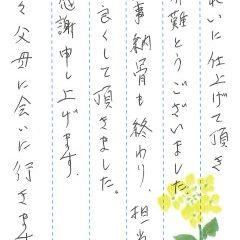 れいに仕上げて頂き
難とうございました。
事納骨も終わり、担当
良くして頂きました。
感謝申し上げます。
々父母に会いに行きます